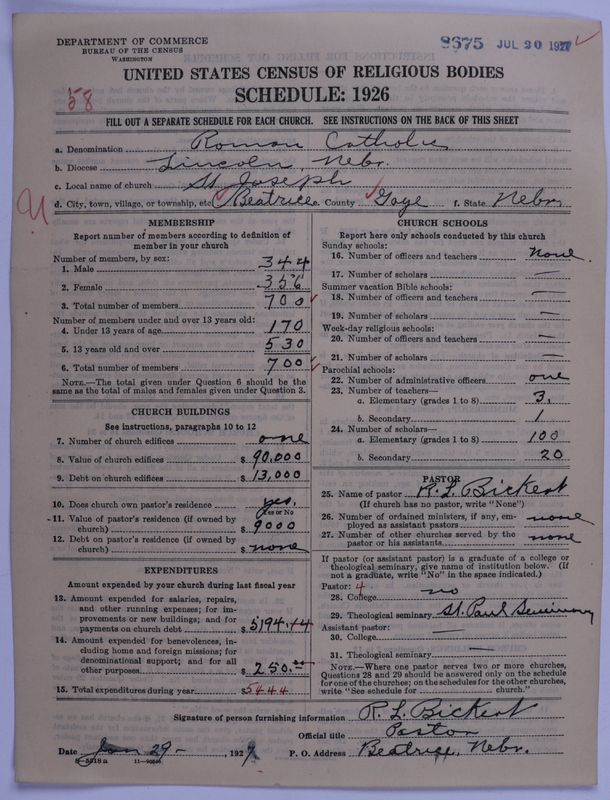 DEPARTMENT OF COMMERCE
BUREAU OF THE CENSUS
WASHINGTON
8675 JUL 20 1927
UNITED STATES CENSUS OF RELIGIOUS BODIES
SCHEDULE: 1926
58
FILL OUT A SEPARATE SCHEDULE FOR EACH CHURCH. SEE INSTRUCTIONS ON THE BACK OF THIS SHEET
a. Denomination Roman Catholic
b. Diocese Lincoln Nebr.
c. Local name of church St Joseph
d. City, town, village, or township, etc. Beatrice e. County Gage f. State Nebr
MEMBERSHIP
Report number of members according to definition of
member in your church
Number of members, by sex:
1. Male 344
2. Female 356
3. Total number of members 700
Number of members under and over 13 years old:
4. Under 13 years of age 170
5. 13 years old and over 530
6. Total number of members 700
NOTE.—The total given under Question 6 should be the
same as the total of males and females given under Question 3.
CHURCH BUILDINGS
See instructions, paragraphs 10 to 12
7. Number of church edifices one
8. Value of church edifices $ 90,000
9. Debt on church edifices $ 13,000
10. Does church own pastor's residence yes.
Yes or No
11. Value of pastor's residence (if owned by
church) $ 9000
12. Debt on pastor's residence (if owned by
church) $ none
EXPENDITURES
Amount expended by your church during last fiscal year
13. Amount expended for salaries, repairs,
and other running expenses; for im-
provements or new buildings; and for
payments on church debt $ 5194.14
14. Amount expended for benevolences, in-
cluding home and foreign missions; for
denominational support; and for all
other purposes $ 250.00
15. Total expenditures during year $ 5444
CHURCH SCHOOLS
Report here only schools conducted by this church
Sunday schools:
16. Number of officers and teachers none.
17. Number of scholars —
Summer vacation Bible schools:
18. Number of officers and teachers —
19. Number of scholars —
Week-day religious schools:
20. Number of officers and teachers —
21. Number of scholars —
Parochial schools:
22. Number of administrative officers one
23. Number of teachers—
a. Elementary (grades 1 to 8) 3.
b. Secondary 1
24. Number of scholars—
a. Elementary (grades 1 to 8) 100
b. Secondary 20
PASTOR
25. Name of pastor R. L. Bickert
(If church has no pastor, write "None")
26. Number of ordained ministers, if any, em-
ployed as assistant pastors none
27. Number of other churches served by the
pastor or his assistants none
If pastor (or assistant pastor) is a graduate of a college or
theological seminary, give name of institution below. (If
not a graduate, write "No" in the space indicated.)
Pastor: 4
28. College no
29. Theological seminary St. Paul Seminary
Assistant pastor:
30. College —
31. Theological seminary —
NOTE.—Where one pastor serves two or more churches,
Questions 28 and 29 should be answered only on the schedule
for one of the churches; on the schedules for the other churches,
write "See schedule for church."
Signature of person furnishing information R. L. Bickert
Official title Pastor
Date Jan 29 - , 1927 P. O. Address Beatrice, Nebr.